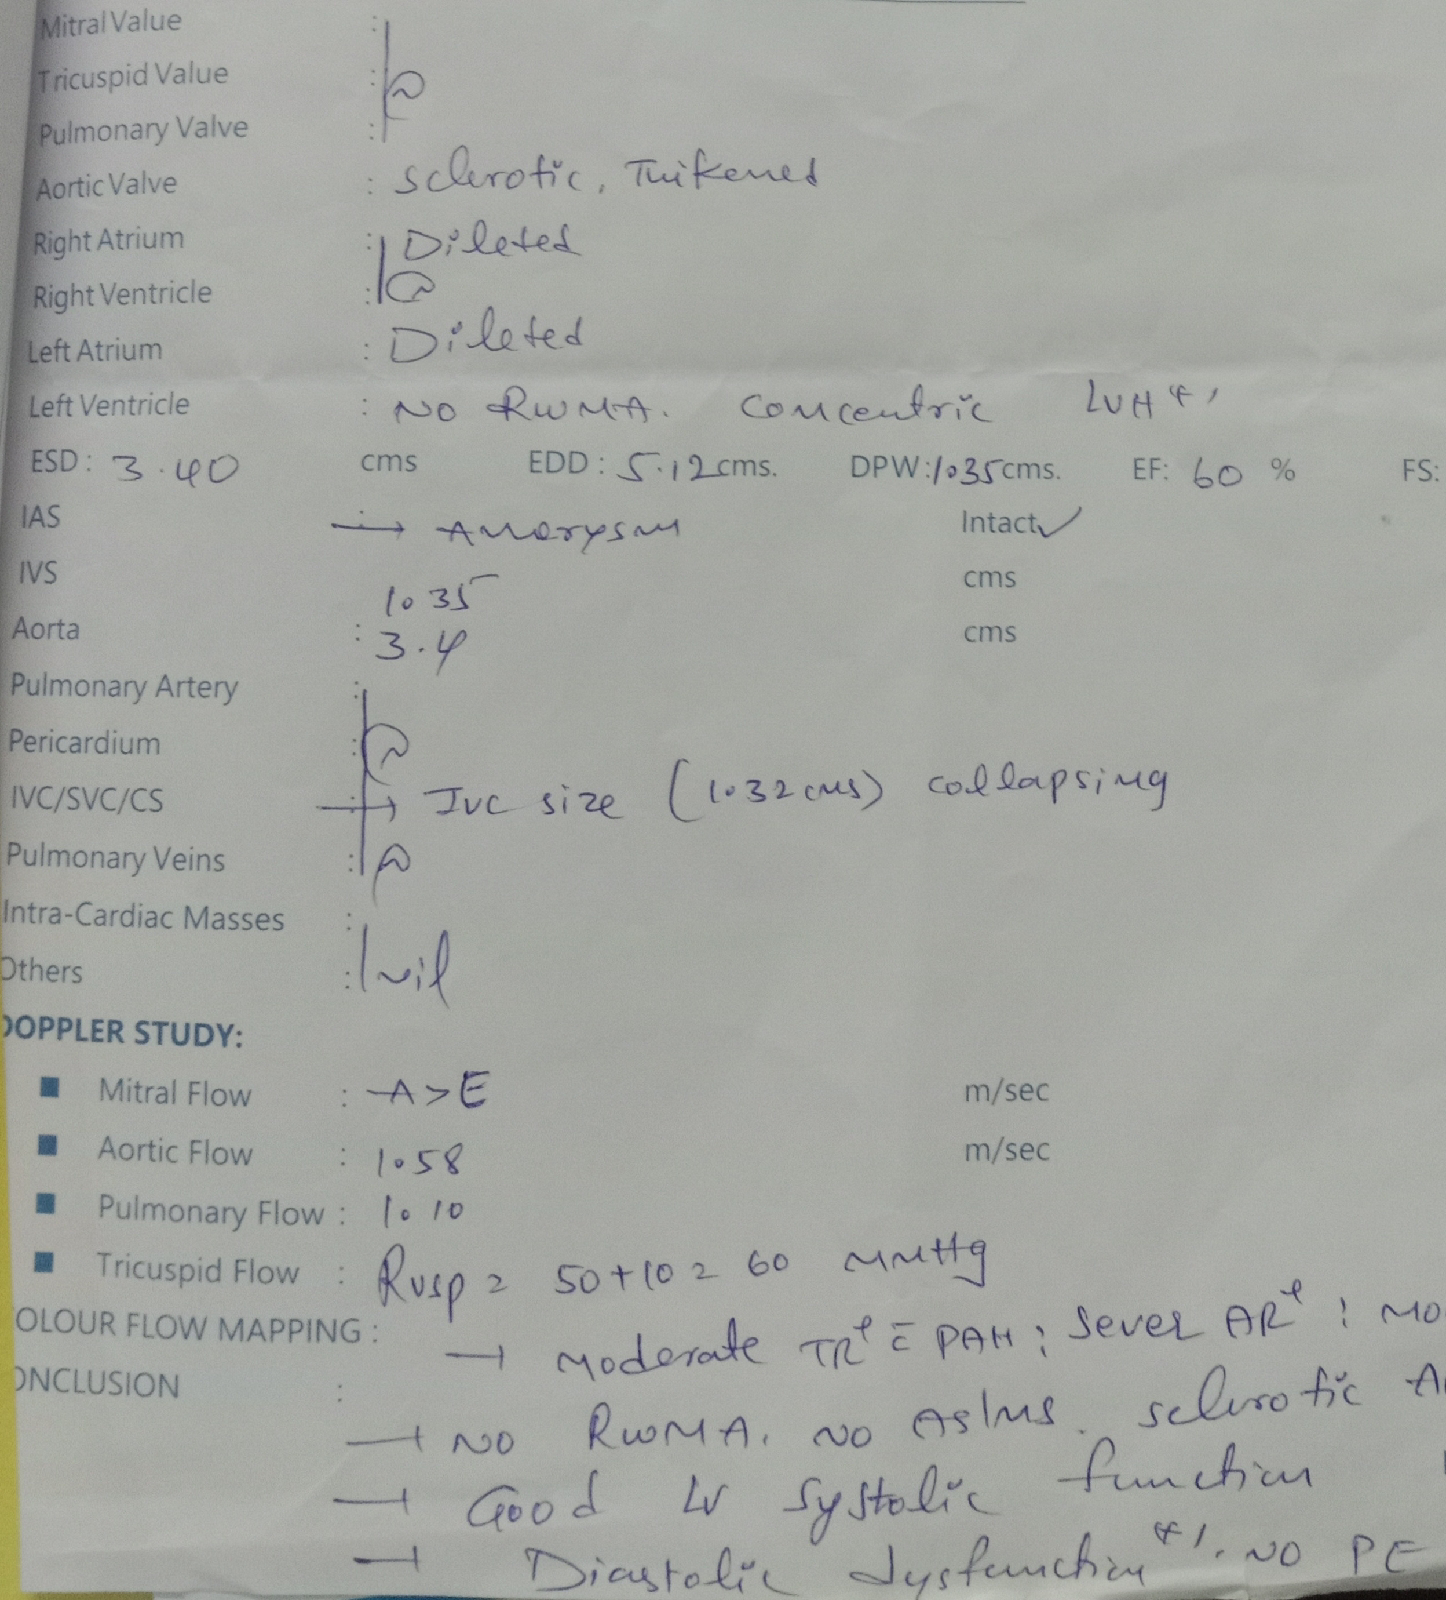 Mitral Value :
Tricuspid Value :
Pulmonary Valve :
Aortic Valve : Sclerotic, Thikened
Right Atrium : Dileted
Right Ventricle :
Left Atrium : Dileted
Left Ventricle : NO RWMA. Concentric LVH +,
ESD : 3.40 cms EDD : 5.12 cms. DPW : 1.35 cms. EF: 60 % FS:
IAS : → Anerysm Intact ✓
IVS 1.35 cms
Aorta : 3.4 cms
Pulmonary Artery :
Pericardium :
IVC/SVC/CS : → IVC size (1.32 cms) collapsing
Pulmonary Veins :
Intra-Cardiac Masses :
Others : Nil
DOPPLER STUDY:
■ Mitral Flow : A>E m/sec
■ Aortic Flow : 1.58 m/sec
■ Pulmonary Flow : 1.10
■ Tricuspid Flow : RVSP = 50+10 = 60 mmHg
OLOUR FLOW MAPPING :
→ Moderate TR+ c̄ PAH; Sever AR+; Mo
ONCLUSION :
→ NO RWMA. NO AS/MS. Sclerotic A
→ Good LV Systolic function
→ Diastolic dysfunction +, NO PE